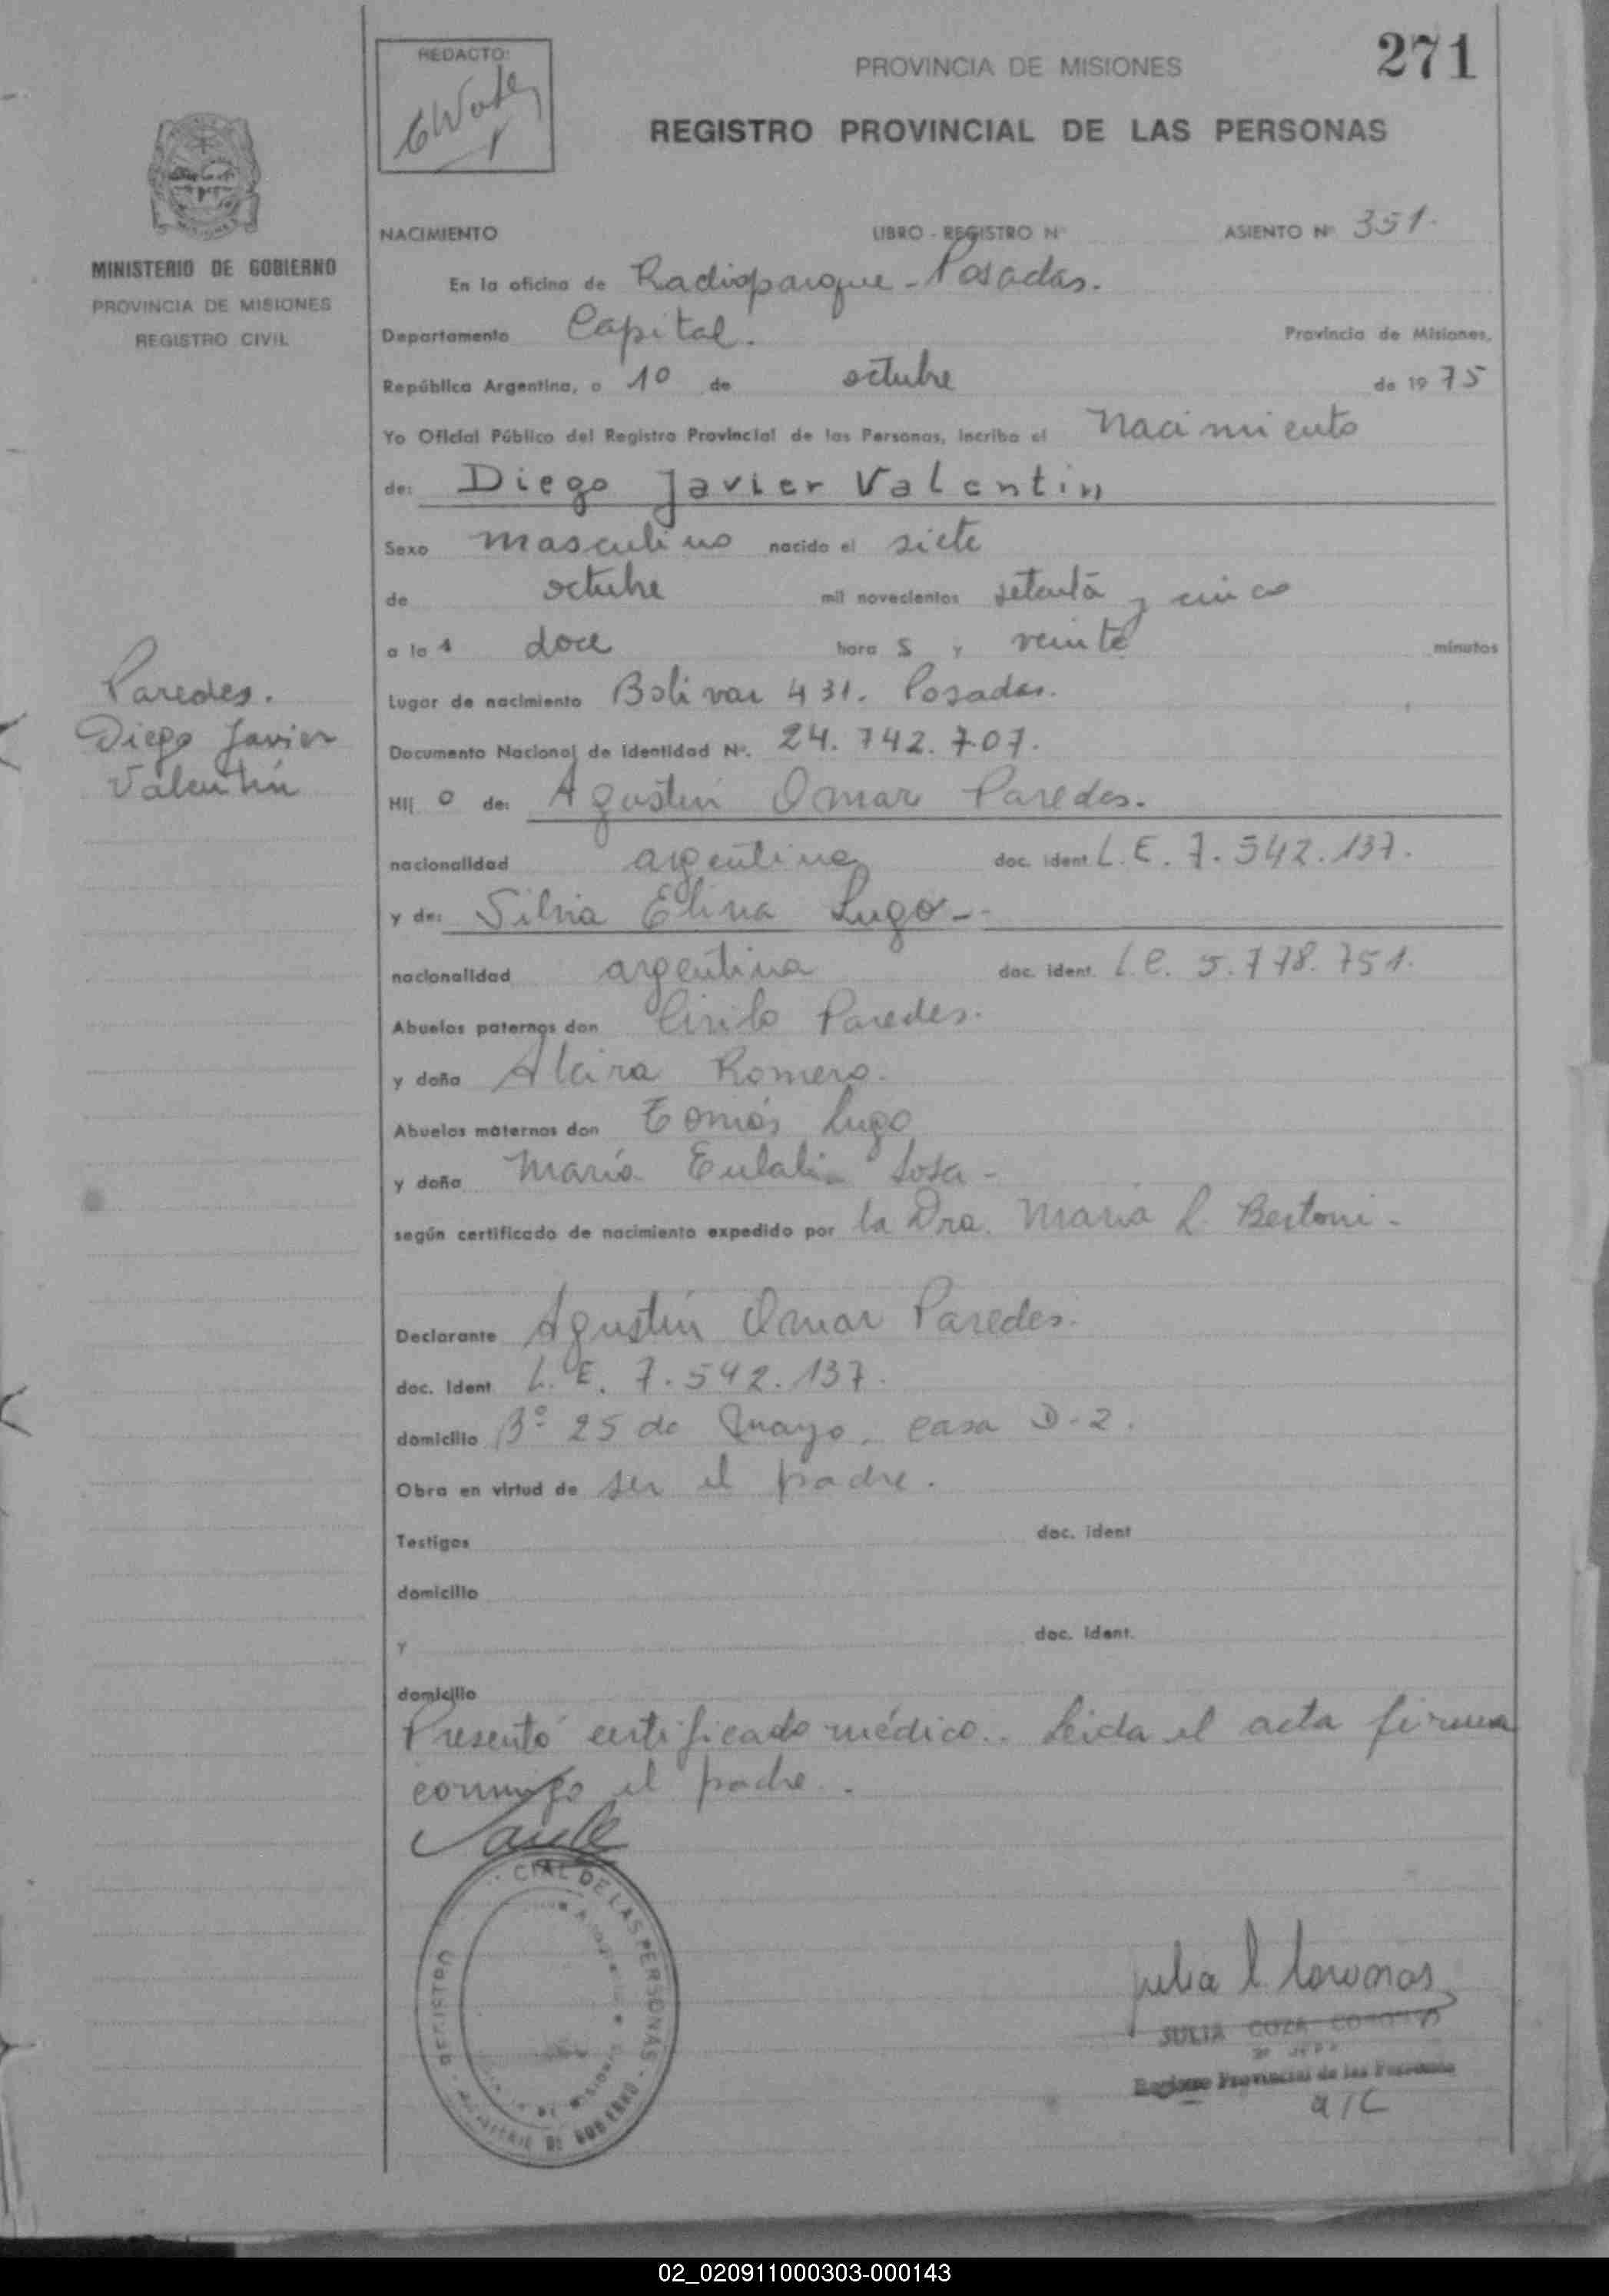 271
REDACTO:
PROVINCIA DE MISIONES
REGISTRO PROVINCIAL DE LAS PERSONAS
MINISTERIO DE GOBIERNO
PROVINCIA DE MISIONES
REGISTRO CIVIL
NACIMIENTO LIBRO - REGISTRO Nº ASIENTO Nº 351.
En la oficina de Radioparque - Posadas.
Departamento Capital. Provincia de Misiones,
República Argentina, a 10 de octubre de 19 75
Yo Oficial Público del Registro Provincial de las Personas, incribo el Nacimiento
de: Diego Javier Valentin
Sexo masculino nacido el siete
de octubre mil novecientos setenta y cinco
a la s doce hora s y veinte minutos
Paredes.
Diego Javier
Valentín
Lugar de nacimiento Bolivar 431. Posadas.
Documento Nacional de Identidad Nº. 24.742.707.
Hij o de: Agustín Omar Paredes.
nacionalidad argentina doc. ident L.E. 7.542.137.
y de: Silvia Elina Lugo -
nacionalidad argentina doc. ident. L.C. 5.778.751.
Abuelos paternos don Cirilo Paredes.
y doña Alcira Romero.
Abuelos maternos don Tomás Lugo
y doña María Eulalia Sosa -
según certificado de nacimiento expedido por la Dra. María L. Bertoni -
Declarante Agustín Omar Paredes.
doc. Ident L.E. 7.542.137.
domicilio Bº 25 de Mayo - casa D-2.
Obra en virtud de ser el padre.
Testigos doc. ident
domicilio
y doc. ident.
domicilio
Presentó certificado médico.. Leida el acta firma
conmigo el padre.
CIAL DE LAS PERSONAS - GOBIERNO - REGISTRO
MISIONES
Julia C. Coronas
JULIA COZA
Registro Provincial de las Personas
a/c
02_020911000303-000143